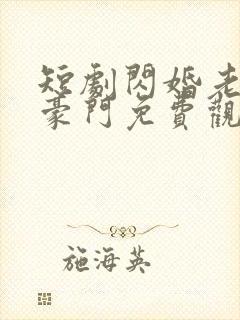 短劇閃婚老
豪門免費觀
施海英